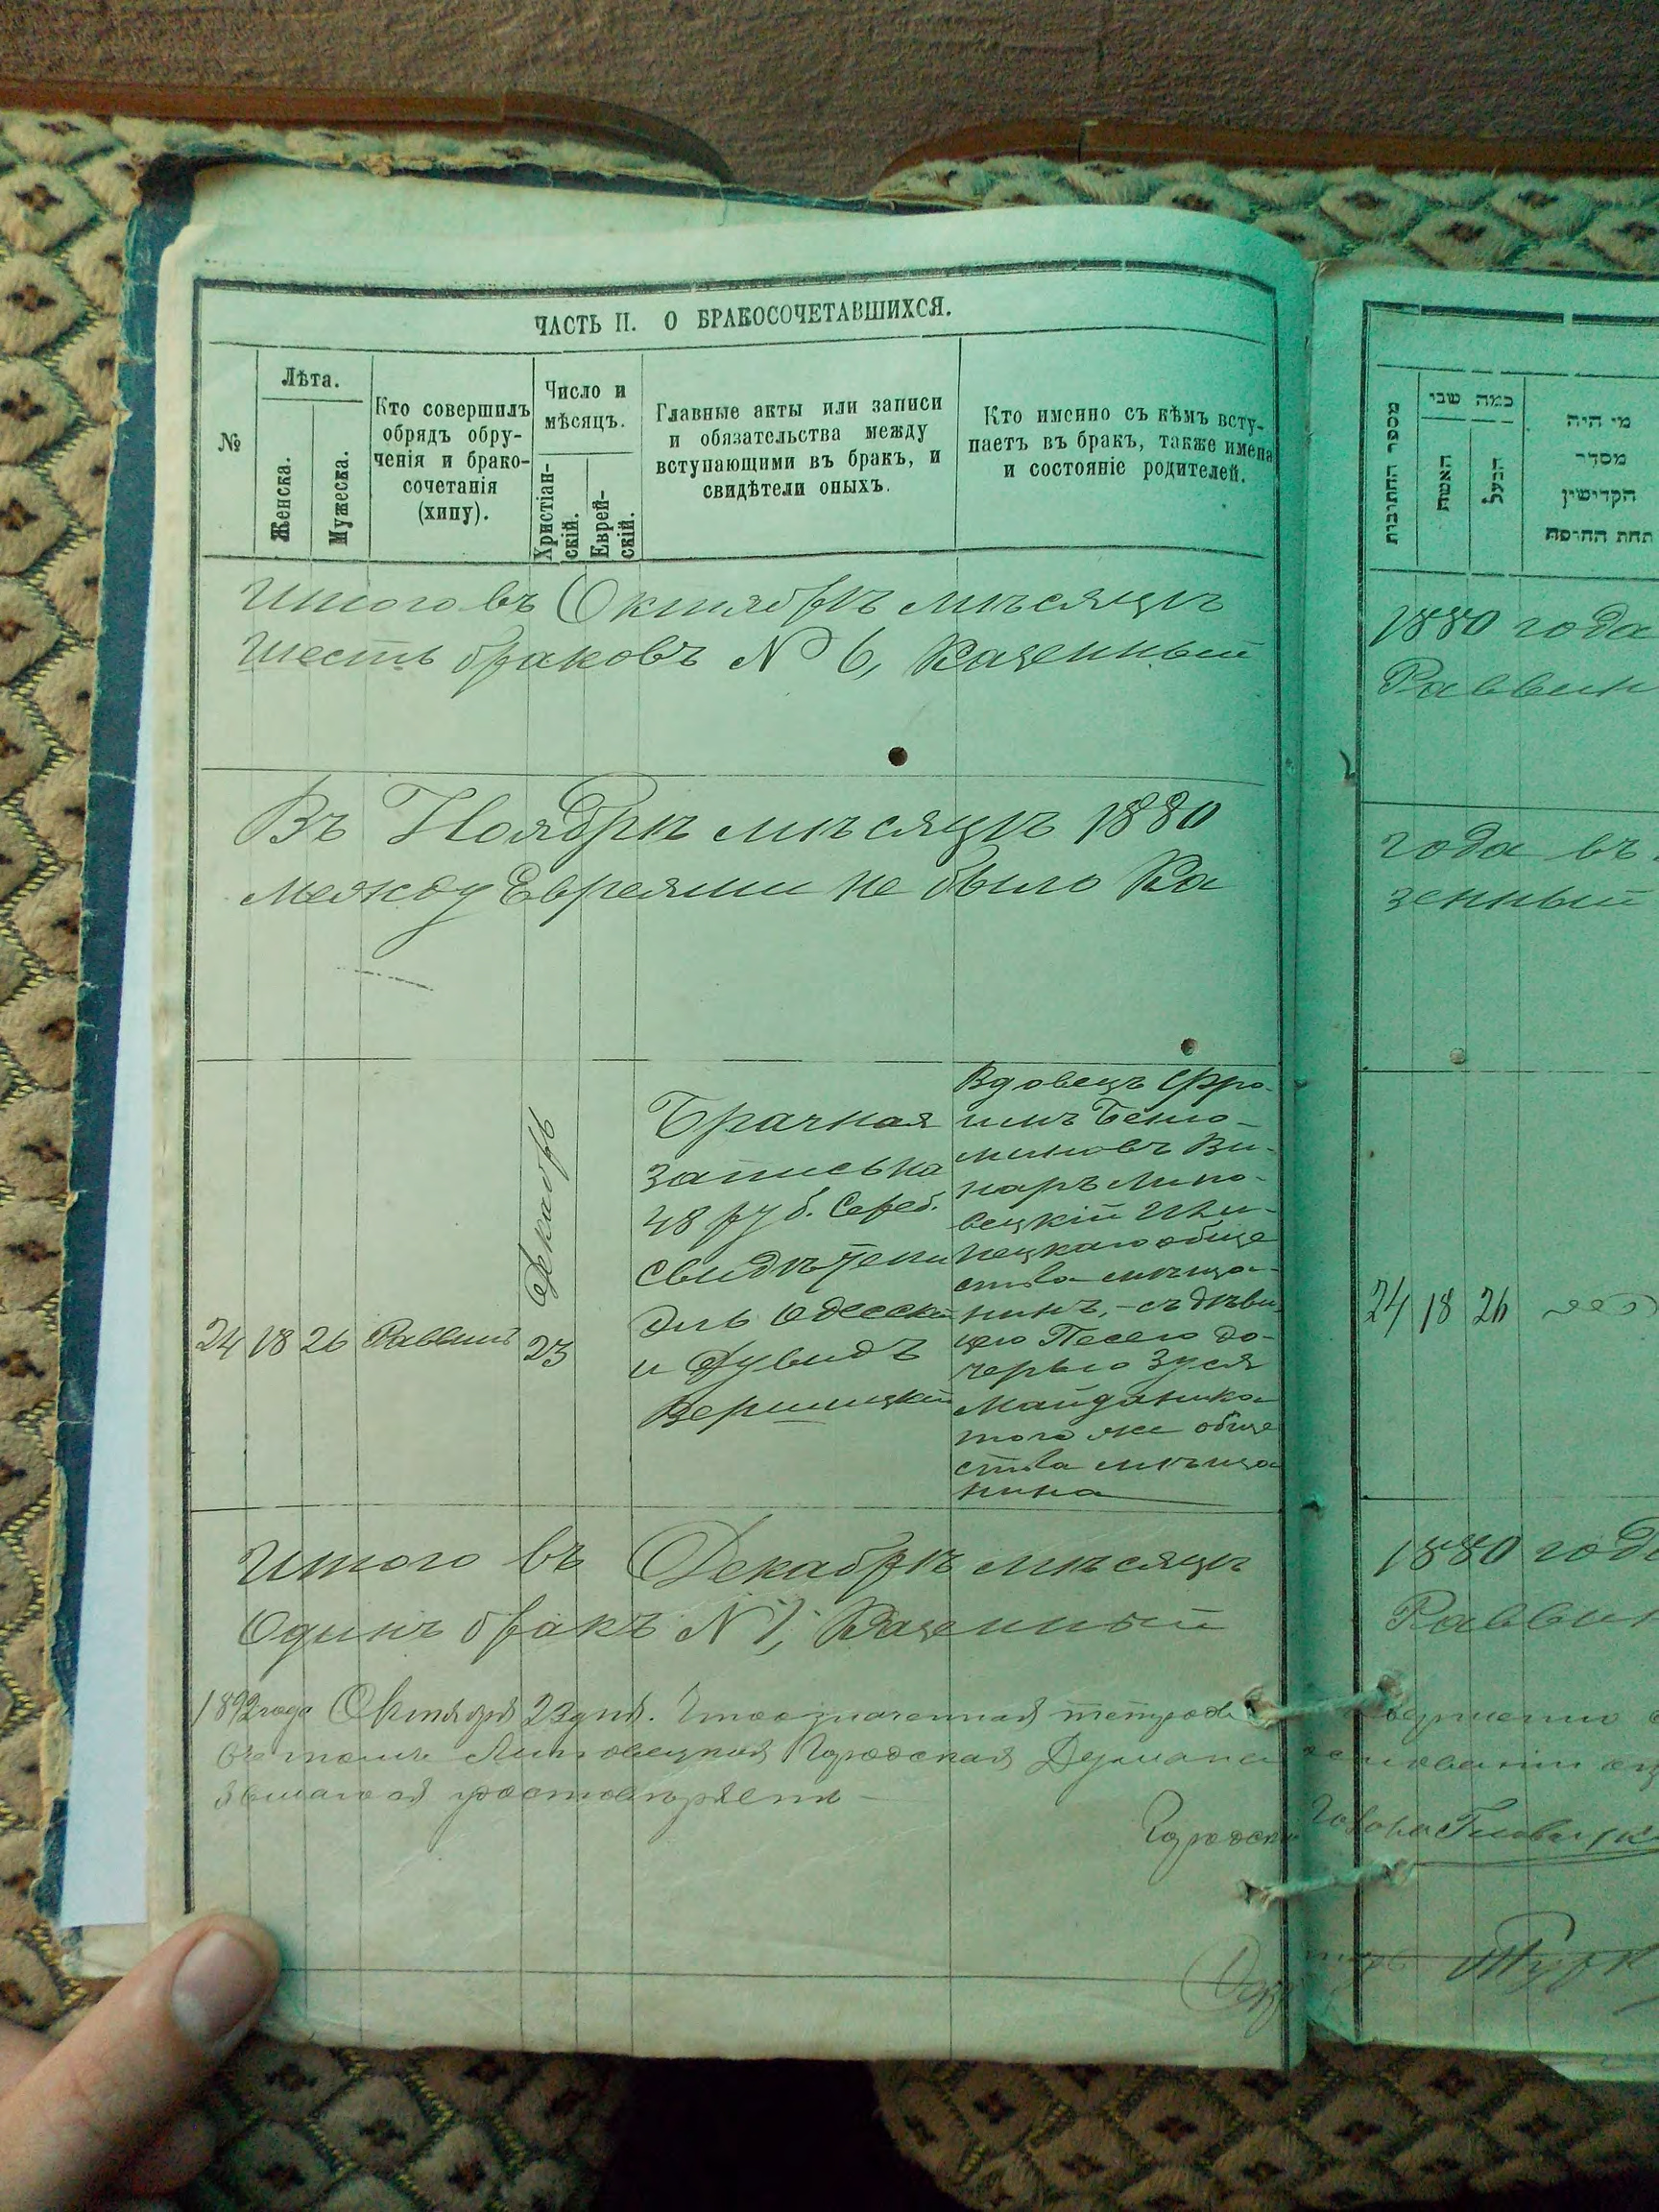 ЧАСТЬ II. О БРАКОСОЧЕТАВШИХСЯ.
№
Лѣта.
Женска.
Мужеска.
Кто совершилъ
обрядъ обру-
ченія и брако-
сочетанія
(хипу).
Число и
мѣсяцъ.
Христіан-
скій.
Еврей-
скій.
Главные акты или записи
и обязательства между
вступающими въ бракъ, и
свидѣтели оныхъ.
Кто именно съ кѣмъ всту-
паетъ въ бракъ, также имена
и состояніе родителей.
Итого въ Октябрѣ мѣсяцѣ
шесть браковъ № 6, Казенный
Въ Ноябрѣ мѣсяцѣ 1880
между Евреями не было Ка
24
18
26
Раввинъ
Декабрь
23
Брачная
запись на
48 руб. Сереб.
свидѣтели
Эль Одесскій
и Дувидъ
Вершицкій
Вдовецъ Фро-
имъ Беньо-
миновъ Ви-
наръ Липо-
вецкій Или-
нецкаго обще
ства мѣща-
нинъ, - съ дѣви
цею Песею до-
черью Зуся
Майданика
того же обще
ства мѣща
нина
Итого въ Декабрѣ мѣсяцѣ
Одинъ бракъ № 1, Казенный
1892 года Октября 23 дня. Что означенная тетрадь
въ томъ Липовецкая Городская Дума
удостовѣряетъ
Городск
מספר החתונות
כמה שני
האשה
הבעל
מי היה
מסדר
הקדישין
תחת החופה
1880 года
Раввин
года въ
зенный
24
18
26
1880 года
Раввин